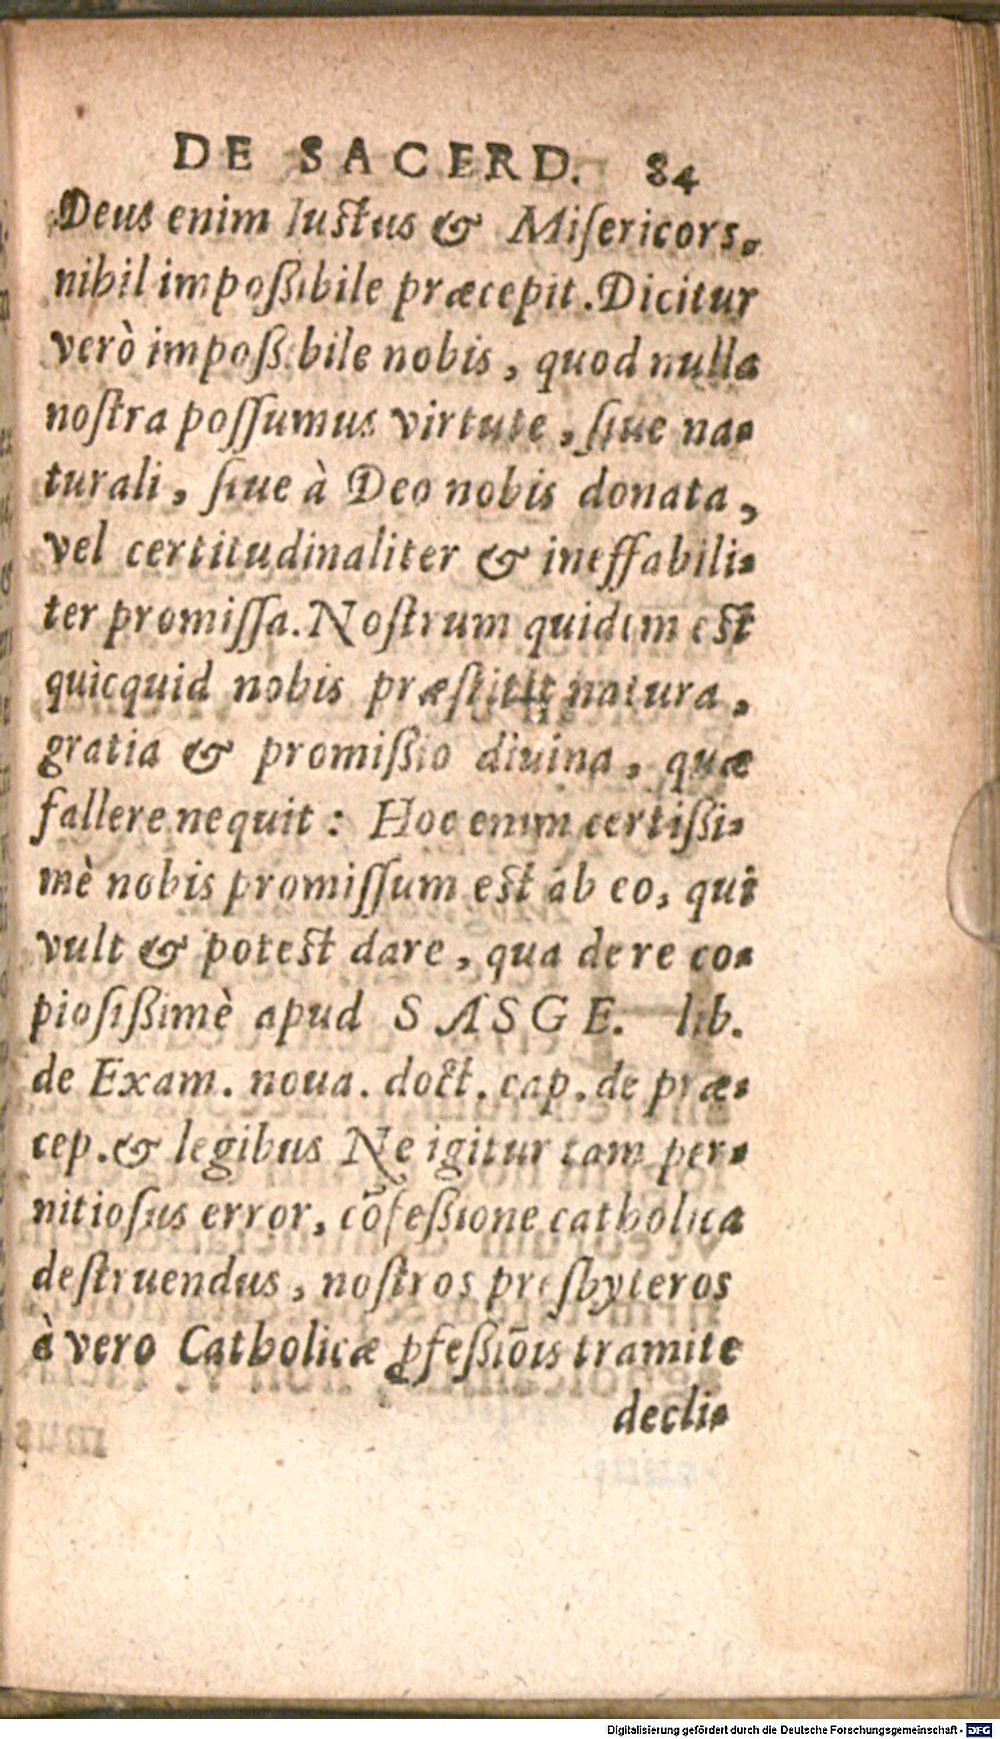 DE SACERD. 84
Deus enim Iustus & Misericors.
nihil impoßibile præcepit. Dicitur
verò impoßibile nobis, quod nulla
noſtra poſſumus virtute, ſiue na-
turali, ſiue à Deo nobis donata,
vel certitudinaliter & ineffabili-
ter promiſſa. Noſtrum quidem est
quicquid nobis præſtitit natura,
gratia & promißio diuina, quæ
fallere nequit: Hoc enim certißi-
mè nobis promiſſum est ab eo, qui
vult & potest dare, qua de re co-
pioſißimè apud SASGE. lib.
de Exam. noua. doct. cap. de præ-
cep. & legibus Ne igitur tam per-
nitioſus error, cõfeßione catholica
deſtruendus, noſtros presbyteros
à vero Catholicæ ꝓfeßiõis tramite
decli-
Digitalisierung gefördert durch die Deutsche Forschungsgemeinschaft - DFG